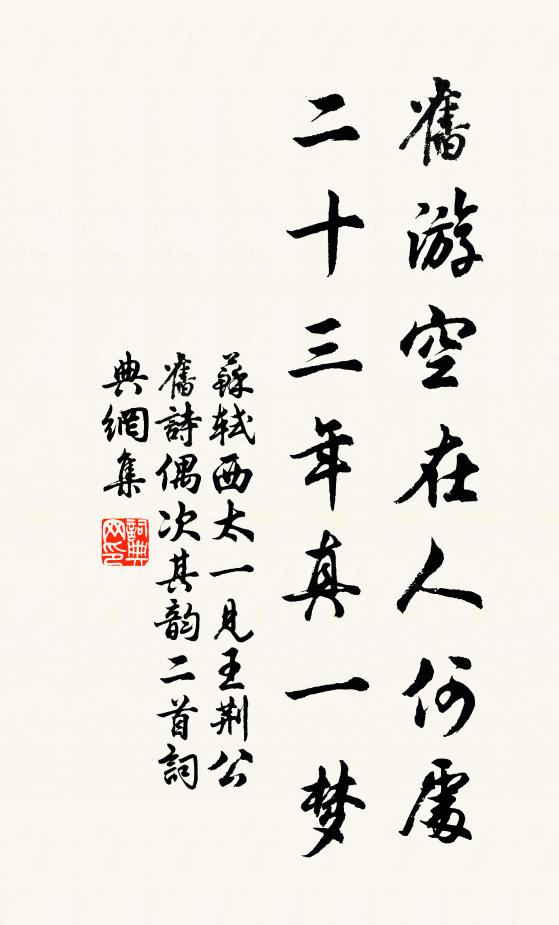 舊游空在人何處
二十三年真一梦
蘇軾西太一見王荆公
舊詩偶次其韵二首詞
典網集
詞典网印